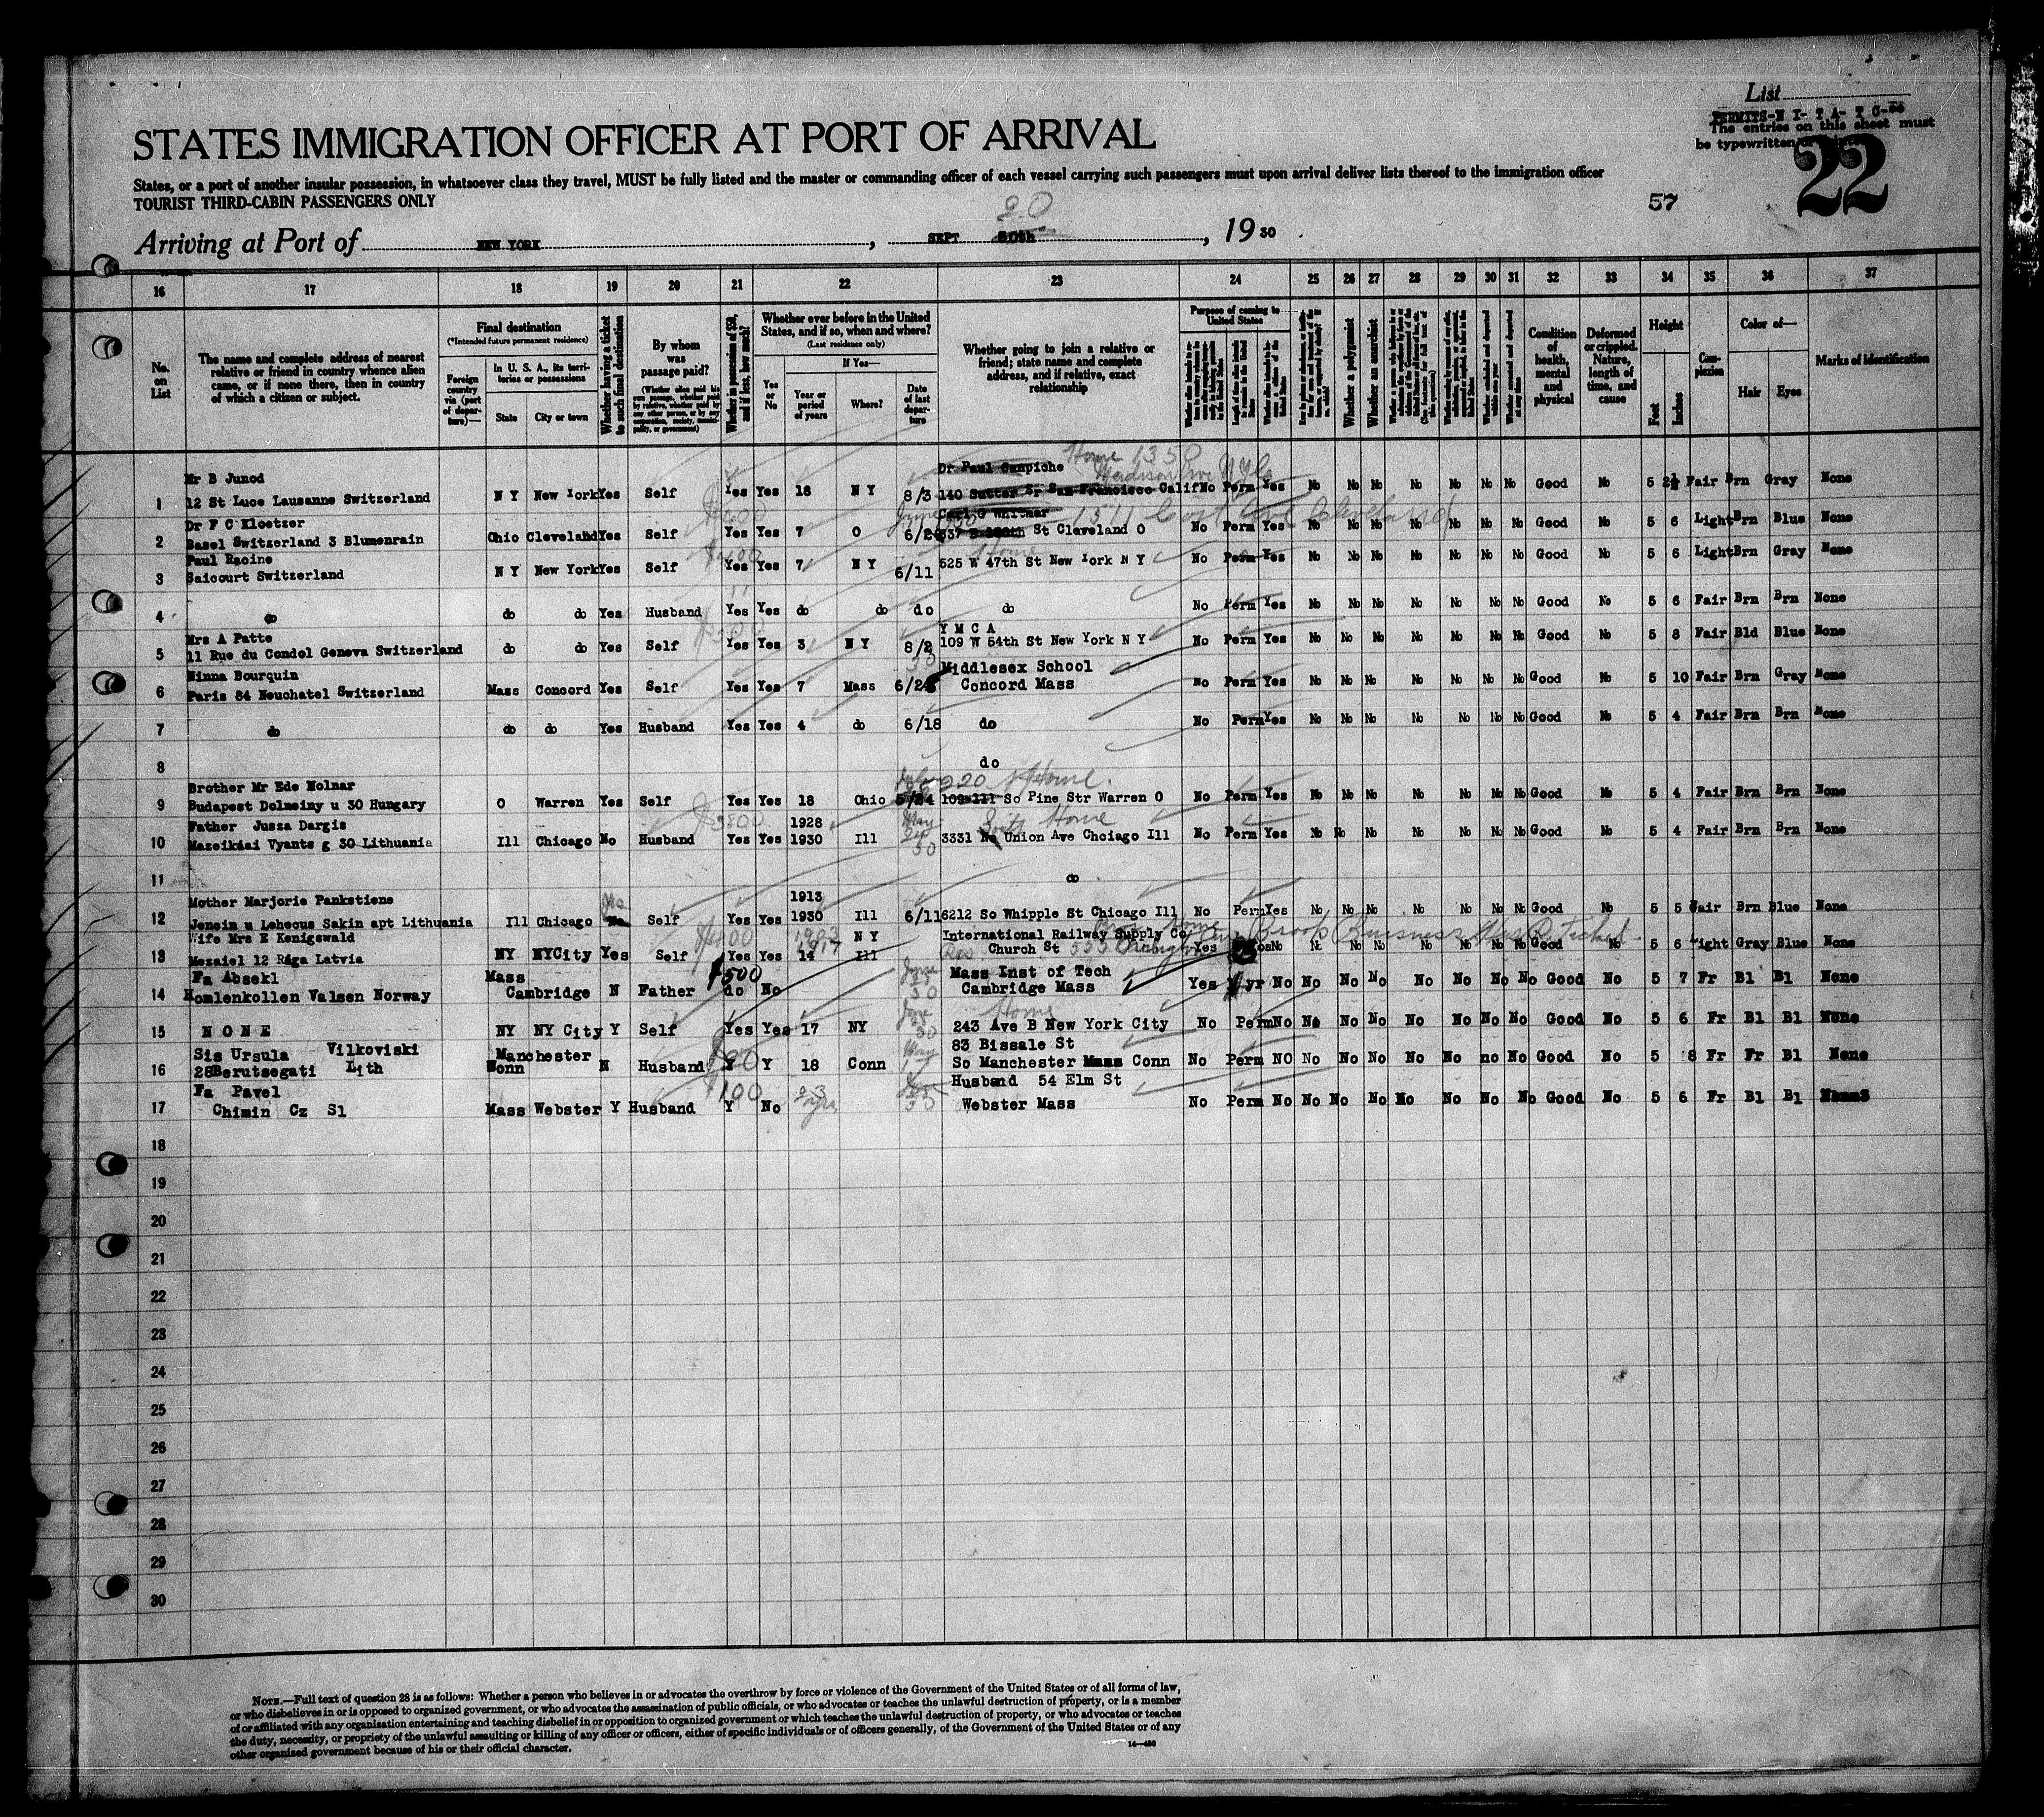 List
PERMITS-N I- T A- T C-
The entries on this sheet must
be typewritten
22
57
STATES IMMIGRATION OFFICER AT PORT OF ARRIVAL
States, or a port of another insular possession, in whatsoever class they travel, MUST be fully listed and the master or commanding officer of each vessel carrying such passengers must upon arrival deliver lists thereof to the immigration officer
TOURIST THIRD-CABIN PASSENGERS ONLY
20
Arriving at Port of NEW YORK, SEPT 20th, 1930.
16 17 18 19 20 21 22 23 24 25 26 27 28 29 30 31 32 33 34 35 36 37
No. on List
The name and complete address of nearest relative or friend in country whence alien came, or if none there, then in country of which a citizen or subject.
Final destination
(*Intended future permanent residence)
Foreign country via (port of departure)—
In U. S. A., its territories or possessions
State
City or town
Whether having a ticket to such final destination
By whom was passage paid?
(Whether alien paid his own passage, whether paid by relative, whether paid by any other person, or by any corporation, society, municipality, or government)
Whether in possession of $50, and if less, how much?
Whether ever before in the United States, and if so, when and where?
(Last residence only)
Yes or No
If Yes—
Year or period of years
Where?
Date of last departure
Whether going to join a relative or friend; state name and complete address, and if relative, exact relationship
Purpose of coming to United States
Whether a polygamist
Whether an anarchist
Condition of health, mental and physical
Deformed or crippled. Nature, length of time, and cause
Height
Feet
Inches
Complexion
Color of—
Hair
Eyes
Marks of identification
Home 1350
Madison Ave N Y C
Mr B Junod Dr Paul Campiche
1 12 St Luce Lausanne Switzerland N Y New York Yes Self Yes Yes 18 N Y 8/3 140 Sutter Sr San Francisco Calif No Perm Yes No No No No No No No Good No 5 2½ Fair Brn Gray None
Dr F C Kloetzer Carl G Whitmer 1511 East Blvd Cleveland
2 Basel Switzerland 3 Blumenrain Ohio Cleveland Yes Self Yes Yes 7 O St Cleveland O No Perm Yes No No No No No No No Good No 5 6 Light Brn Blue None
Paul Racine Home
3 Saicourt Switzerland N Y New York Yes Self Yes Yes 7 N Y 6/11 525 W 47th St New York N Y No Perm Yes No No No No No No No Good No 5 6 Light Brn Gray None
4 do do do Yes Husband Yes Yes do do do do No Perm Yes No No No No No No No Good No 5 6 Fair Brn Brn None
Mrs A Patte Y M C A
5 11 Rue du Condol Geneva Switzerland do do Yes Self Yes Yes 3 N Y 8/2 109 W 54th St New York N Y No Perm Yes No No No No No No No Good No 5 8 Fair Bld Blue None
Ninna Bourquin Middlesex School
6 Paris 84 Neuchatel Switzerland Mass Concord Yes Self Yes Yes 7 Mass Concord Mass No Perm Yes No No No No No No No Good No 5 10 Fair Brn Gray None
7 do do do Yes Husband Yes Yes 4 do 6/18 do No Perm Yes No No No No No No No Good No 5 4 Fair Brn Brn None
8 do
Brother Mr Ede Molnar 220 Home.
9 Budapest Dolmeiny u 30 Hungary O Warren Yes Self Yes Yes 18 Ohio 109-111 So Pine Str Warren O No Perm Yes No No No No No No No Good No 5 4 Fair Brn Brn None
Father Jusza Dargis 1928 May South Home
10 Mazeikiai Vyants g 30 Lithuania Ill Chicago No Husband Yes Yes 1930 Ill 30 3331 Union Ave Chciago Ill No Perm Yes No No No No No No No Good No 5 4 Fair Brn Brn None
11 do
Mother Marjorie Pankstiene Yes 1913
12 Jenein u Lehecus Sakin apt Lithuania Ill Chicago Self Yes Yes 1930 Ill 6/11 6212 So Whipple St Chicago Ill No Perm Yes No No No No No No No Good No 5 5 Fair Brn Blue None
Wife Mrs E Kenigswald $400 N Y International Railway Supply Co
13 Mezaiel 12 Riga Latvia NY NYCity Yes Self Yes Yes 14 Ill Church St Yes No No No No No No No Good No 5 6 Light Gray Blue None
Fa Absekl Mass $500 Mass Inst of Tech
14 Homlenkollen Valsen Norway Cambridge N Father do No Cambridge Mass Yes 1 yr No No No No No No No No Good No 5 7 Fr Bl Bl None
Home
15 N O N E NY NY City Y Self Yes Yes 17 NY 30 243 Ave B New York City No Perm No No No No No No No No Good No 5 6 Fr Bl Bl None
Sis Ursula Vilkoviski Manchester 83 Bissale St
16 28Berutsegati Lith Conn N Husband Y Y 18 Conn So Manchester Conn No Perm NO No No No No No no No Good No 5 8 Fr Fr Bl None
Fa Pavel $100 Husband 54 Elm St
17 Chimin Cz Sl Mass Webster Y Husband Y No Webster Mass No Perm No No No No No No No No Good No 5 6 Fr Bl Bl
18
19
20
21
22
23
24
25
26
27
28
29
30
NOTE.—Full text of question 28 is as follows: Whether a person who believes in or advocates the overthrow by force or violence of the Government of the United States or of all forms of law,
or who disbelieves in or is opposed to organized government, or who advocates the assassination of public officials, or who advocates or teaches the unlawful destruction of property, or is a member
of or affiliated with any organization entertaining and teaching disbelief in or opposition to organized government or which teaches the unlawful destruction of property, or who advocates or teaches
the duty, necessity, or propriety of the unlawful assaulting or killing of any officer or officers, either of specific individuals or of officers generally, of the Government of the United States or of any
other organized government because of his or their official character.
14—490